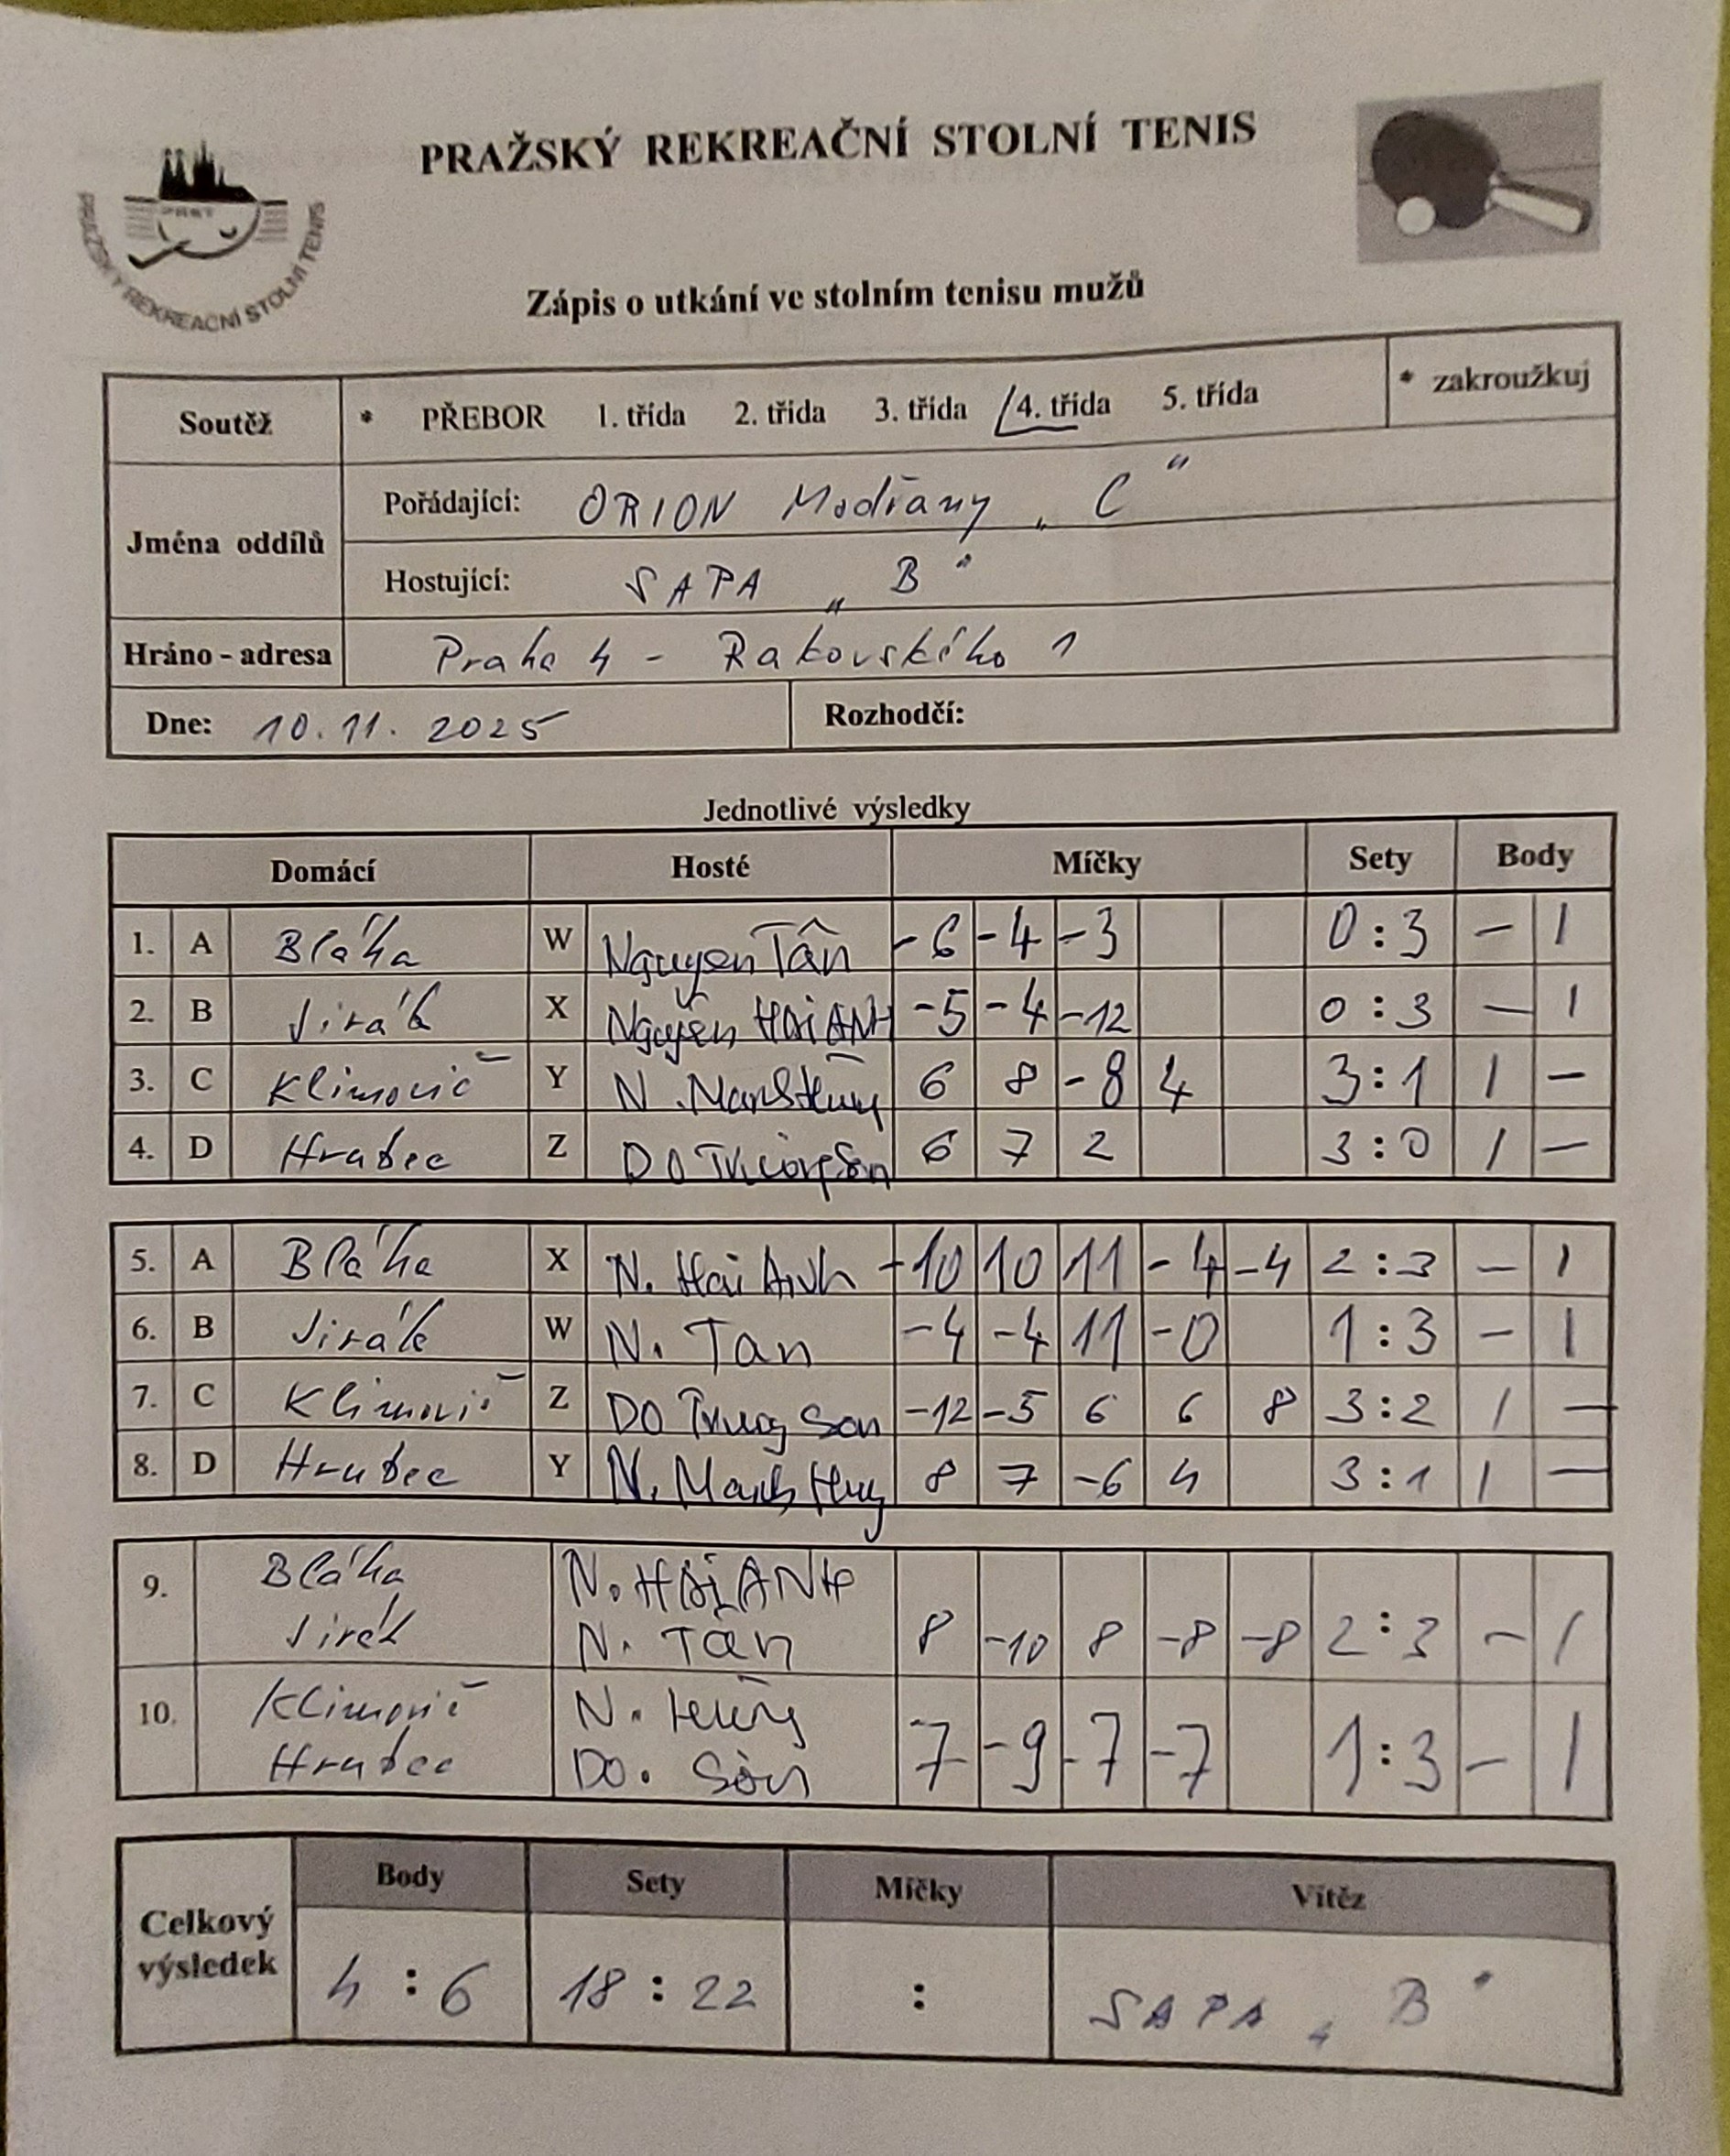 PRAŽSKÝ REKREAČNÍ STOLNÍ TENIS
PRST
PRAŽSKÝ REKREAČNÍ STOLNÍ TENIS
Zápis o utkání ve stolním tenisu mužů
Soutěž * PŘEBOR 1. třída 2. třída 3. třída 4. třída 5. třída * zakroužkuj
Jména oddílů
Pořádající: ORION Modřany „C“
Hostující: SAPA „B“
Hráno - adresa Praha 4 - Rakovského 1
Dne: 10.11.2025 Rozhodčí:
Jednotlivé výsledky
Domácí Hosté Míčky Sety Body
1. A Bláha W Nguyen Tân -6 -4 -3 0:3 - 1
2. B Jirák X Nguyen HẢI ANH -5 -4 -12 0:3 - 1
3. C Klimovič Y N. 6 8 -8 4 3:1 1 -
4. D Hrubec Z DO 6 7 2 3:0 1 -
5. A Bláha X N. Hải Anh -10 10 11 -4 -4 2:3 - 1
6. B Jirák W N. Tan -4 -4 11 -0 1:3 - 1
7. C Klimovič Z DO Trung Son -12 -5 6 6 8 3:2 1 -
8. D Hrubec Y N. Manh Hug 8 7 -6 4 3:1 1 -
9. Bláha N. HẢI ANH
Jirák N. Tân 8 -10 8 -8 -8 2:3 - 1
10. Klimovič N. Hùng
Hrubec DO. Sơn 7 -9 -7 -7 1:3 - 1
Celkový výsledek
Body Sety Míčky Vítěz
4 : 6 18 : 22 : SAPA „B“